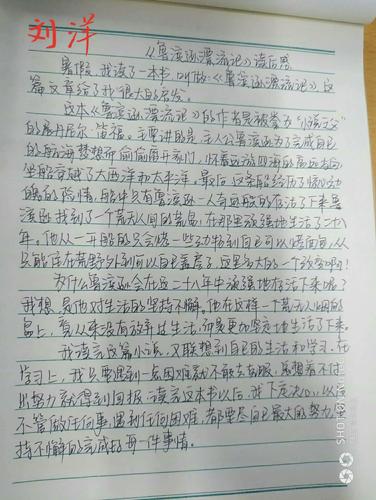 刘洋
《鲁滨逊漂流记》读后感
暑假,我读了一本书,叫做《鲁滨逊漂流记》,这
篇文章给了我很大的启发。
这本《鲁滨逊漂流记》的作者是被誉为“小说之父”
的丹尼尔·笛福。主要讲的是:主人公鲁滨逊为了完成自己
的航海梦想而偷偷离开家们,怀着远游四海的高远志向,
坐船穿越了大西洋和太平洋。最后,这条船经历了惊心动
魄的险情,船中只有鲁滨逊一人奇迹般的存活了下来。鲁
滨逊找到了个荒无人间的荒岛,在那里顽强地生活了二十八
年。他从一开始的只会
只能住在荒野外到可以自己盖房子,这是多大的一个改变啊!
为什么鲁滨逊会在这二十八年中顽强地存活下来呢?
我想,是他对生活的坚持不懈。他在这样一个荒无人烟的
岛上,看从来没有放弃过生活,而是更加坚定地生活了下来。
我读完这篇小说,又联想到自己的生活和学习。在
学习上,我只要遇到一点困难就不敢去克服,总想着不付
出努力就得到回报。读完这本书以后,我下定决心,以后
不管做任何事,遇到任何困难,都要尽自己最大的努力,坚
持不懈的完成好每一件事情。
SHOT ON